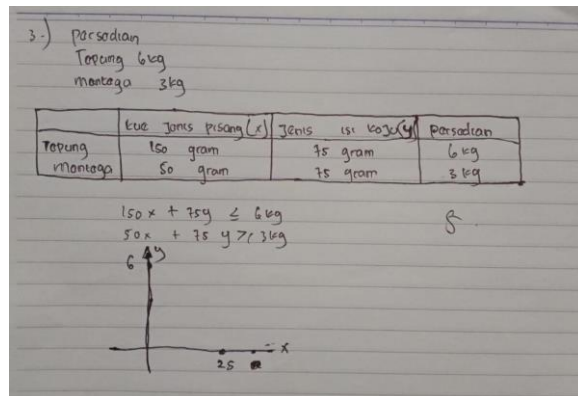 3.) Porsodian
Topung 6 kg
montoga 3 kg
kue Jonis pisong (x) Jenis isi koJu (y) Porsodian
Topung 150 gram 75 gram 6 kg
montoga 50 gram 75 gram 3 kg
150x + 75y ≤ 6 kg
50x + 75 y ≥ 3 kg
6 y
x
25